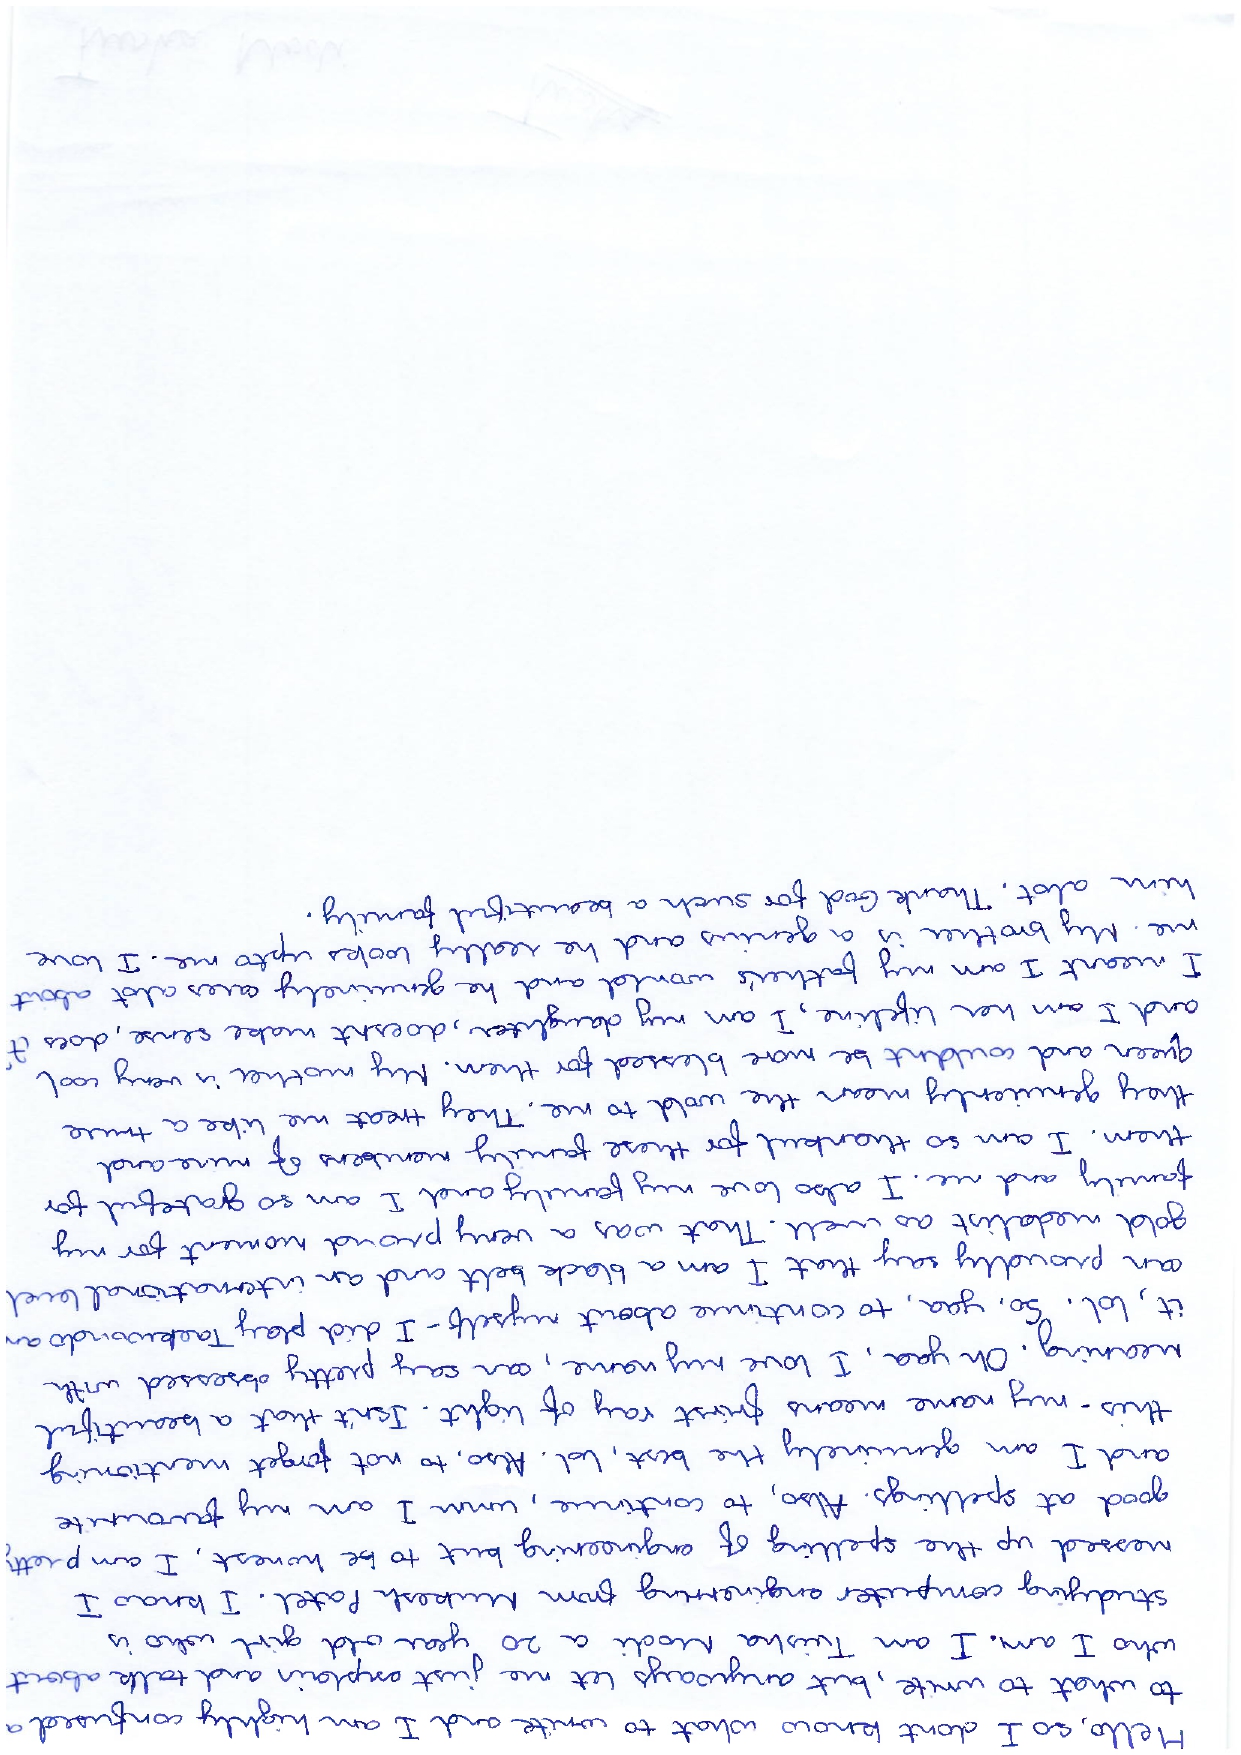 Hello, so I dont know what to write and I am highly confused a
to what to write, but anyways let me just explain and talk about
who I am. I am Tvisha Modi a 20 year old girl who is
studying computer enginerring from Mukesh Patel. I know I
messed up the spelling of engineering but to be honest, I am pretty
good at spellings. Also, to continue, umm I am my favourite
and I am genuinely the best, lol. Also, to not forget mentioning
this - my name means frirst ray of light. Isn't that a beautiful
meaning. Oh yaa, I love my name, can say pretty obsessed with
it, lol. So, yaa, to continue about myself - I did play Taekwondo an
can proudly say that I am a black belt and an international level
gold medalist as well. That was a very proud moment for my
family and me. I also love my family and I am so grateful for
them. I am so thankul for these family members of mine and
they genuienly mean the wold to me. They treat me like a true
queen and couldnt be more blessed for them. My mother is very cool
and I am her lifeline, I am my daughter, doesnt make sense, does it?
I meant I am my father's world and he genuinely cares alot about
me. My brother is a genius and he really looks upto me. I love
him alot. Thank God for such a beautiful family.